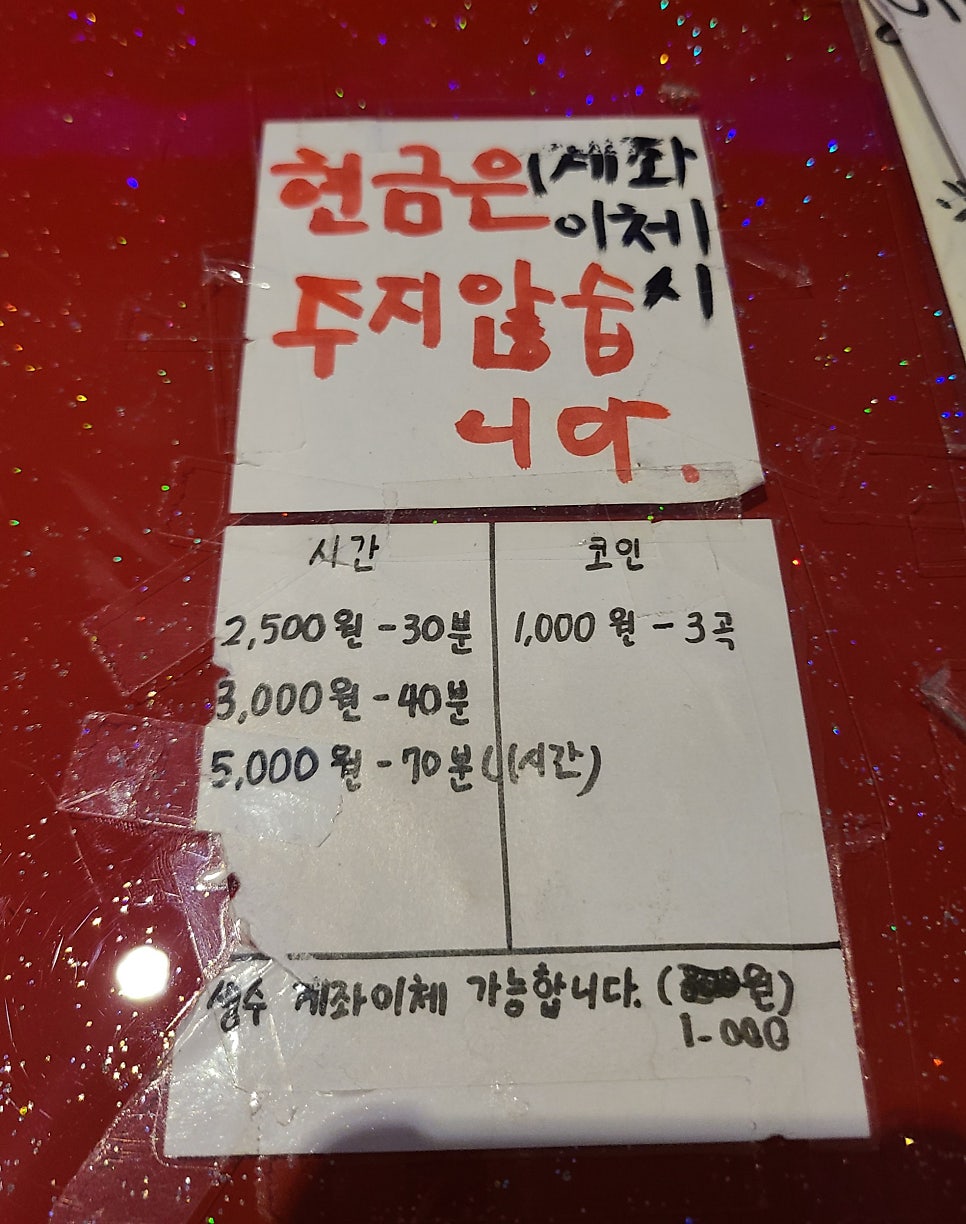 현금은 (계좌
이체
시
주지않습
니다.
시간
코인
2,500원 - 30분
1,000원 - 3곡
3,000원 - 40분
5,000원 - 70분 ((시간)
생수 계좌이체 가능합니다. (원)
1-000